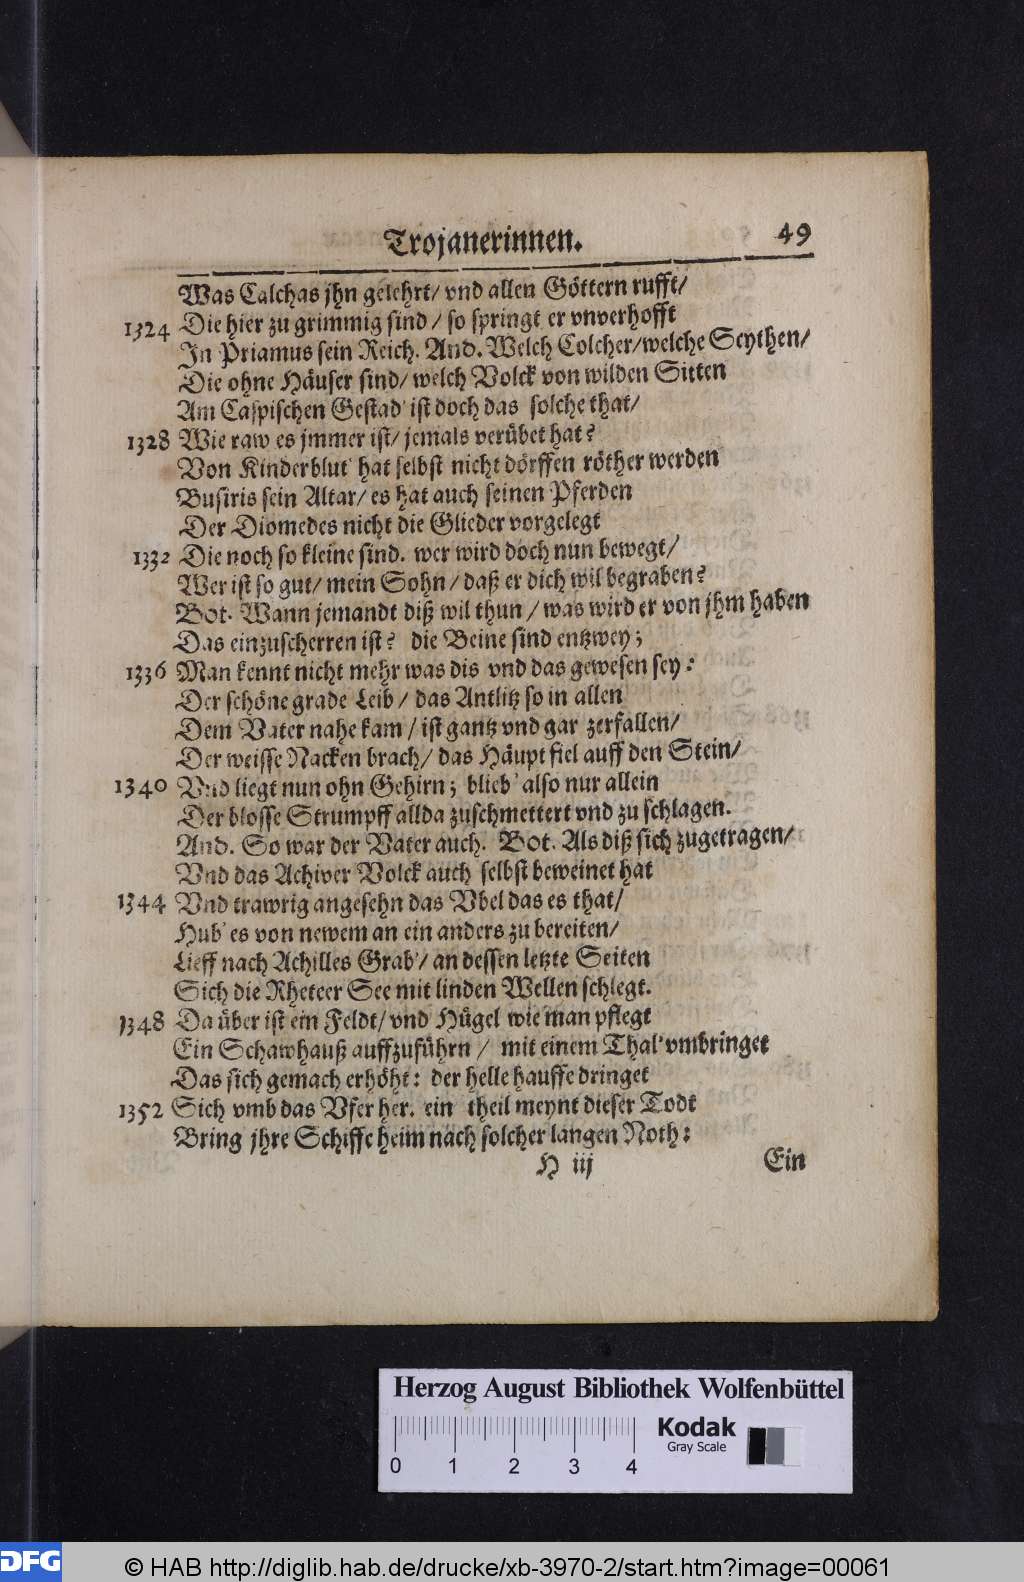 Trojanerinnen. 49
Was Calchas jhn gelehrt/ vnd allen Göttern rufft/
1324 Die hier zu grimmig sind / so springt er vnverhofft
In Priamus sein Reich. And. Welch Colcher/welche Scythen/
Die ohne Häuser sind/ welch Volck von wilden Sitten
Am Caspischen Gestad' ist doch das solche that/
1328 Wie raw es jmmer ist/ jemals verübet hat?
Von Kinderblut' hat selbst nicht dörffen röther werden
Busiris sein Altar/ es hat auch seinen Pferden
Der Diomedes nicht die Glieder vorgelegt
1332 Die noch so kleine sind. wer wird doch nun bewegt/
Wer ist so gut/ mein Sohn/ daß er dich wil begraben?
Bot. Wann jemandt diß wil thun / was wird er von jhm haben
Das einzuscherren ist? die Beine sind entzwey;
1336 Man kennt nicht mehr was dis vnd das gewesen sey:
Der schöne grade Leib / das Antlitz so in allen
Dem Vater nahe kam / ist gantz vnd gar zerfallen/
Der weisse Nacken brach/ das Häupt fiel auff den Stein/
1340 Vnd liegt nun ohn Gehirn; blieb' also nur allein
Der blosse Strumpff allda zuschmettert vnd zu schlagen.
And. So war der Vater auch. Bot. Als diß sich zugetragen/
Vnd das Achiver Volck auch selbst beweinet hat
1344 Vnd trawrig angesehn das Vbel das es that/
Hub' es von newem an ein anders zu bereiten/
Lieff nach Achilles Grab'/ an dessen letzte Seiten
Sich die Rheteer See mit linden Wellen schlegt.
1348 Da über ist ein Feldt/ vnd Hügel wie man pflegt
Ein Schawhauß auffzuführn / mit einem Thal' vmbringet
Das sich gemach erhöht: der helle hauffe dringet
1352 Sich vmb das Vfer her. ein theil meynt dieser Todt
Bring jhre Schiffe heim nach solcher langen Noth:
H iij Ein
Herzog August Bibliothek Wolfenbüttel
Kodak
Gray Scale
0 1 2 3 4
DFG © HAB http://diglib.hab.de/drucke/xb-3970-2/start.htm?image=00061